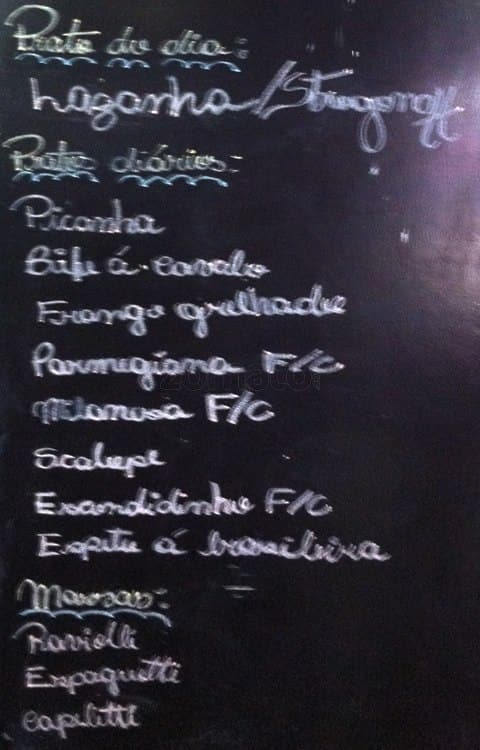 Prato do dia:
Lazanha/Strogonoff
Pratos diários:
Picanha
Bife á cavalo
Frango grelhado
Parmegiana F/C
zomato
Milanesa F/C
Scalope
Escondidinho F/C
Espeto á brasileira
Massas:
Raviolli
Espaguetti
Capeletti